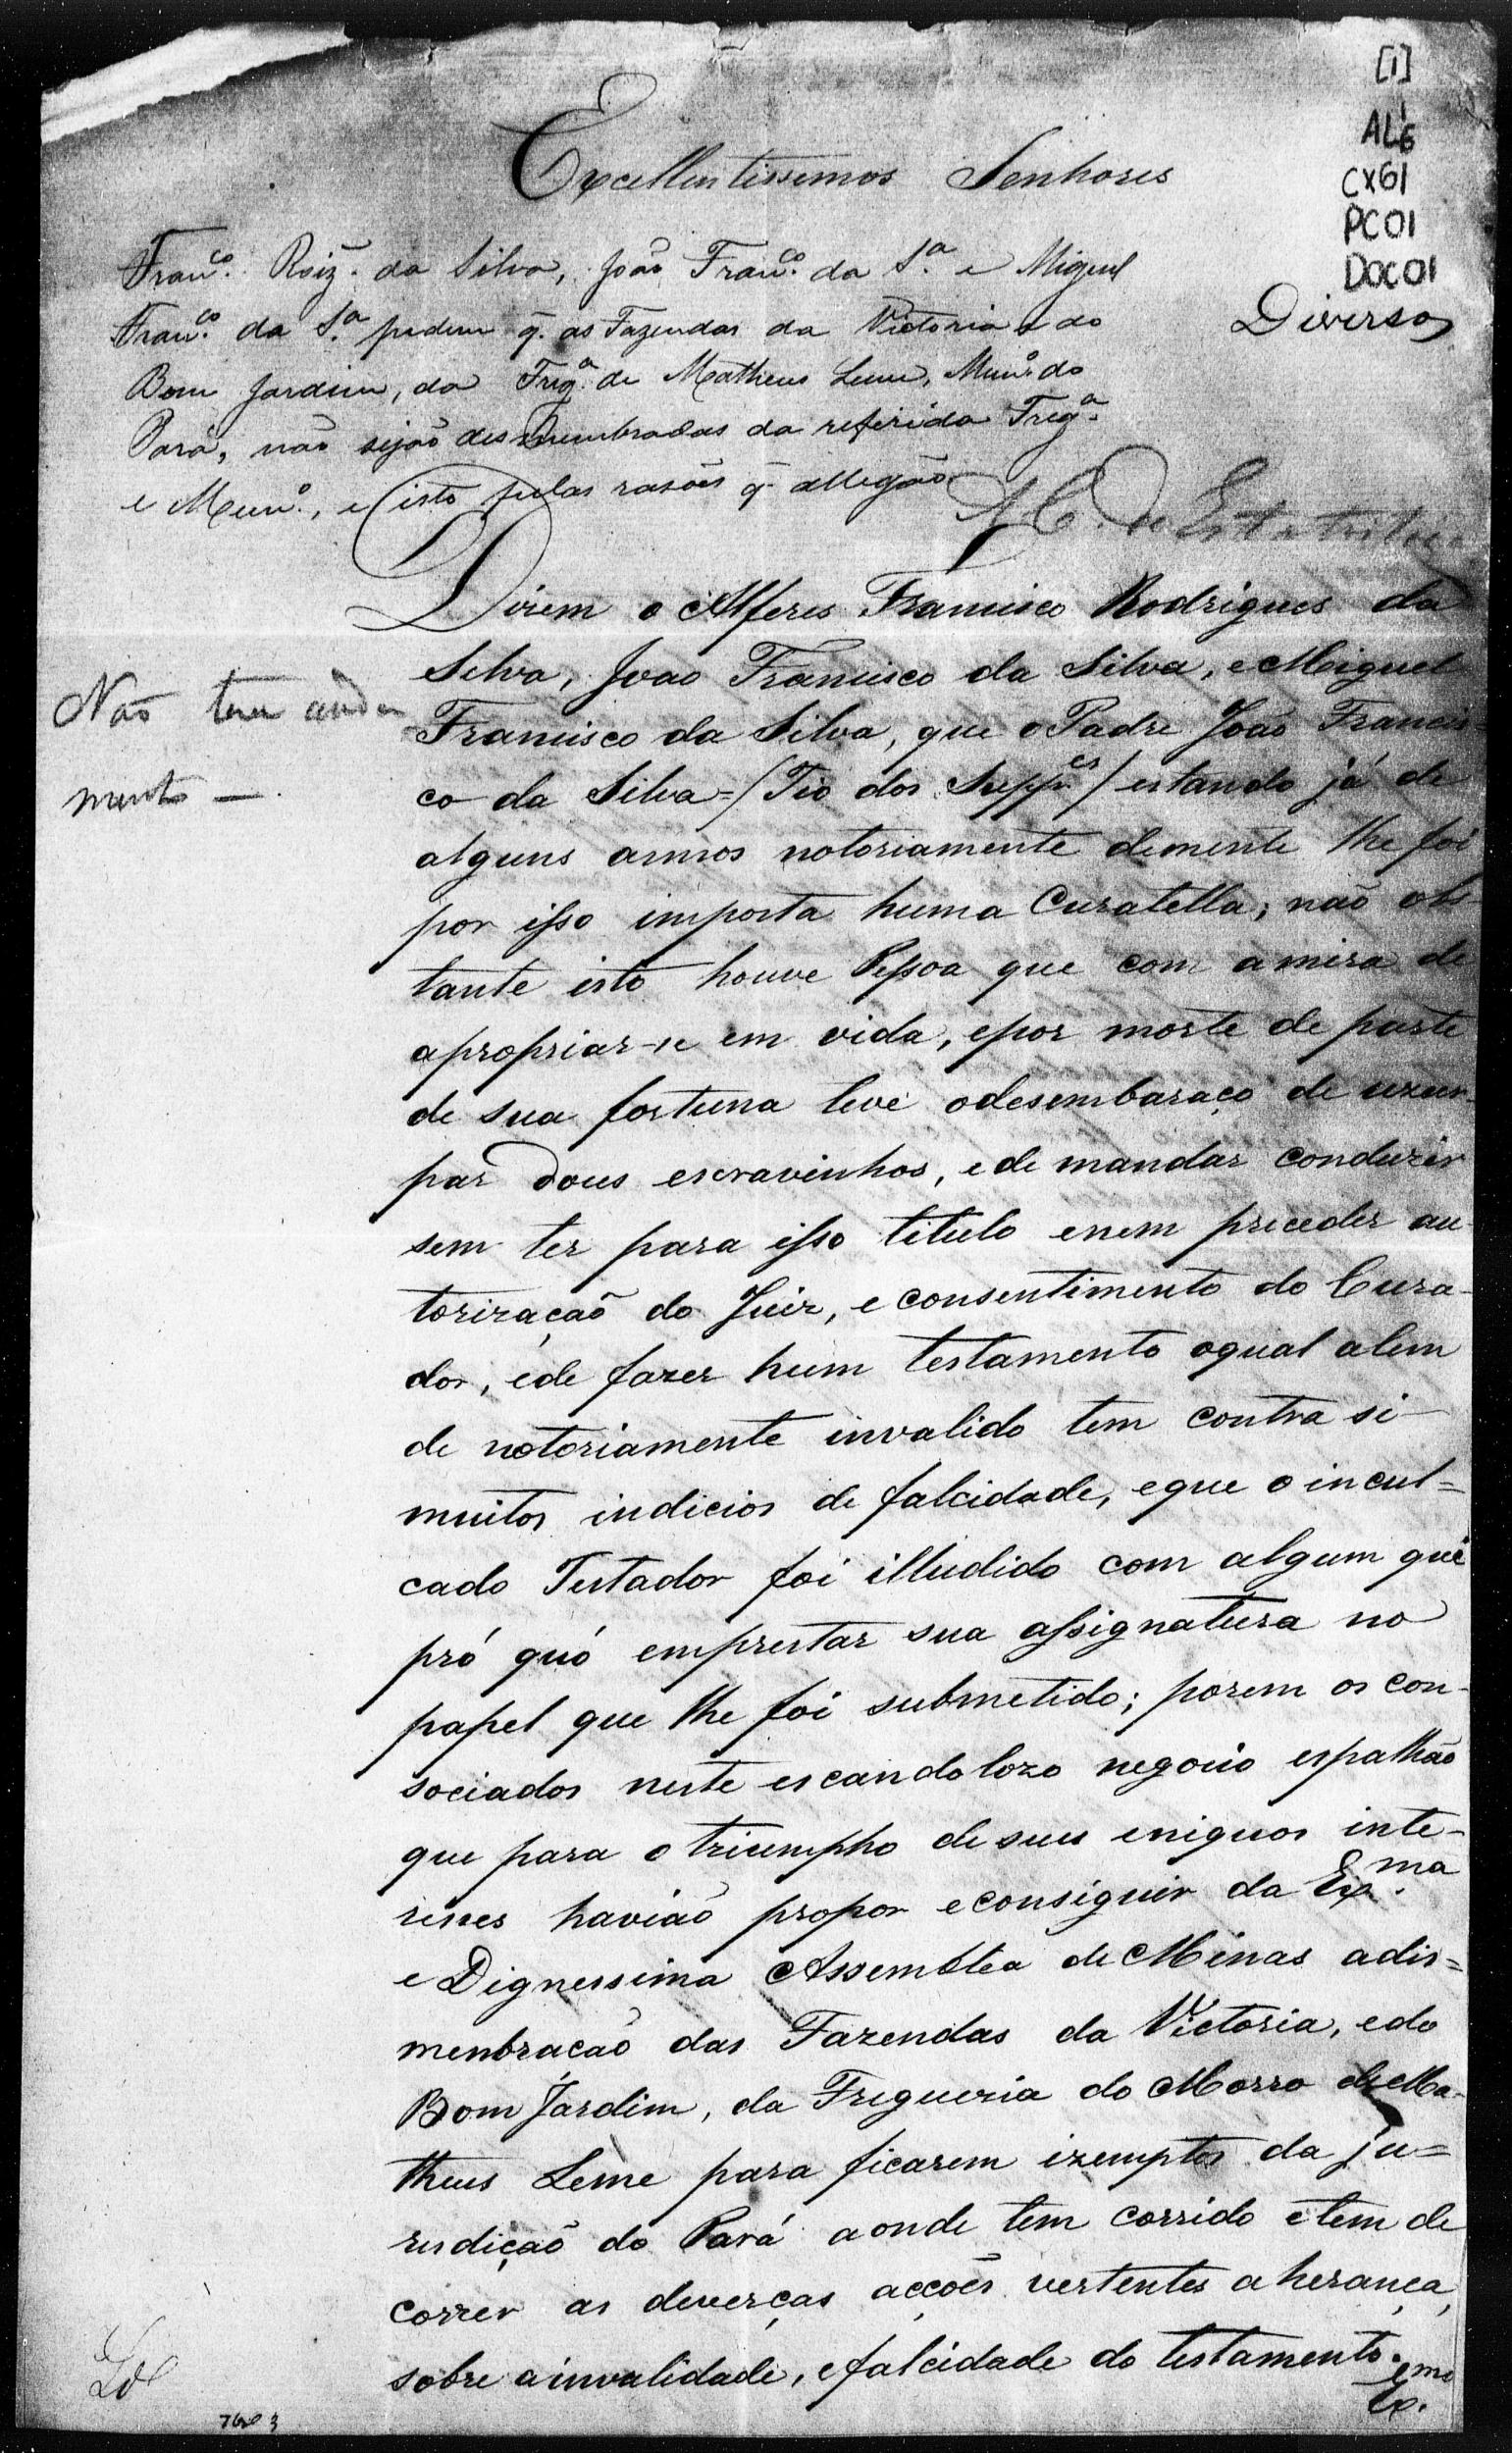 [1]
AL 1/6
CX61
PC01
DOC01
Diversos
Excellentissemos Senhores
Franco. Roiz. da Silva, João Franco. da Sa. e Miguel
Franco. da Sa. pedem q. as Fazendas da Victoria e do
Bom Jardim, da Frega. de Matheus Leme, Muno. do
Pará, não sejão desmembradas da referida Frega.
e Muno., e isto pelas rasões q. allegão
Á C. de Estatistica
Dizem o Alferes Francisco Rodrigues da
Selva, Joao Francisco da Silva, e Miguel
Francisco da Silva, que o Padre João Francis=
co da Silva=/Tio dos Suppes/ estando já de
alguns annos notoriamente demente lhe foi
por isso imposta huma Curatella; não obs-
tante isto houve Pessoa que com a mira de
apropriar-se em vida, e por morte de parte
de sua fortuna teve o desembaraço de uzur-
par dous escravinhos, e de mandar conduzir
sem ter para isso titulo e nem preceder au-
torização do Juiz, e consentimento do Cura-
dor, e de fazer hum testamento o qual alem
de notoriamente invalido tem contra si
muitos indicios de falcidade, e que o incul=
cado Testador foi illudido com algum qui
pró quó emprestar sua assignatura no
papel que lhe foi submetido; porem os con-
sociados neste escandolozo negocio espalhão
que para o triumpho de sues eniquos inte-
resses havião propor e consiguir da Exma.
e Dignessima Assemblea de Minas a dis=
menbracão das Fazendas da Victoria, e do
Bom Jardim, da Fregueria do Morro de Ma-
theus Leme para ficarem izemptos da ju=
redição do Pará aonde tem corrido e tem de
correr as deverças acções vertentes a herança,
sobre a invalidade, e falcidade do testamento.
Exmo.
Não teve anda
mento —.
7603